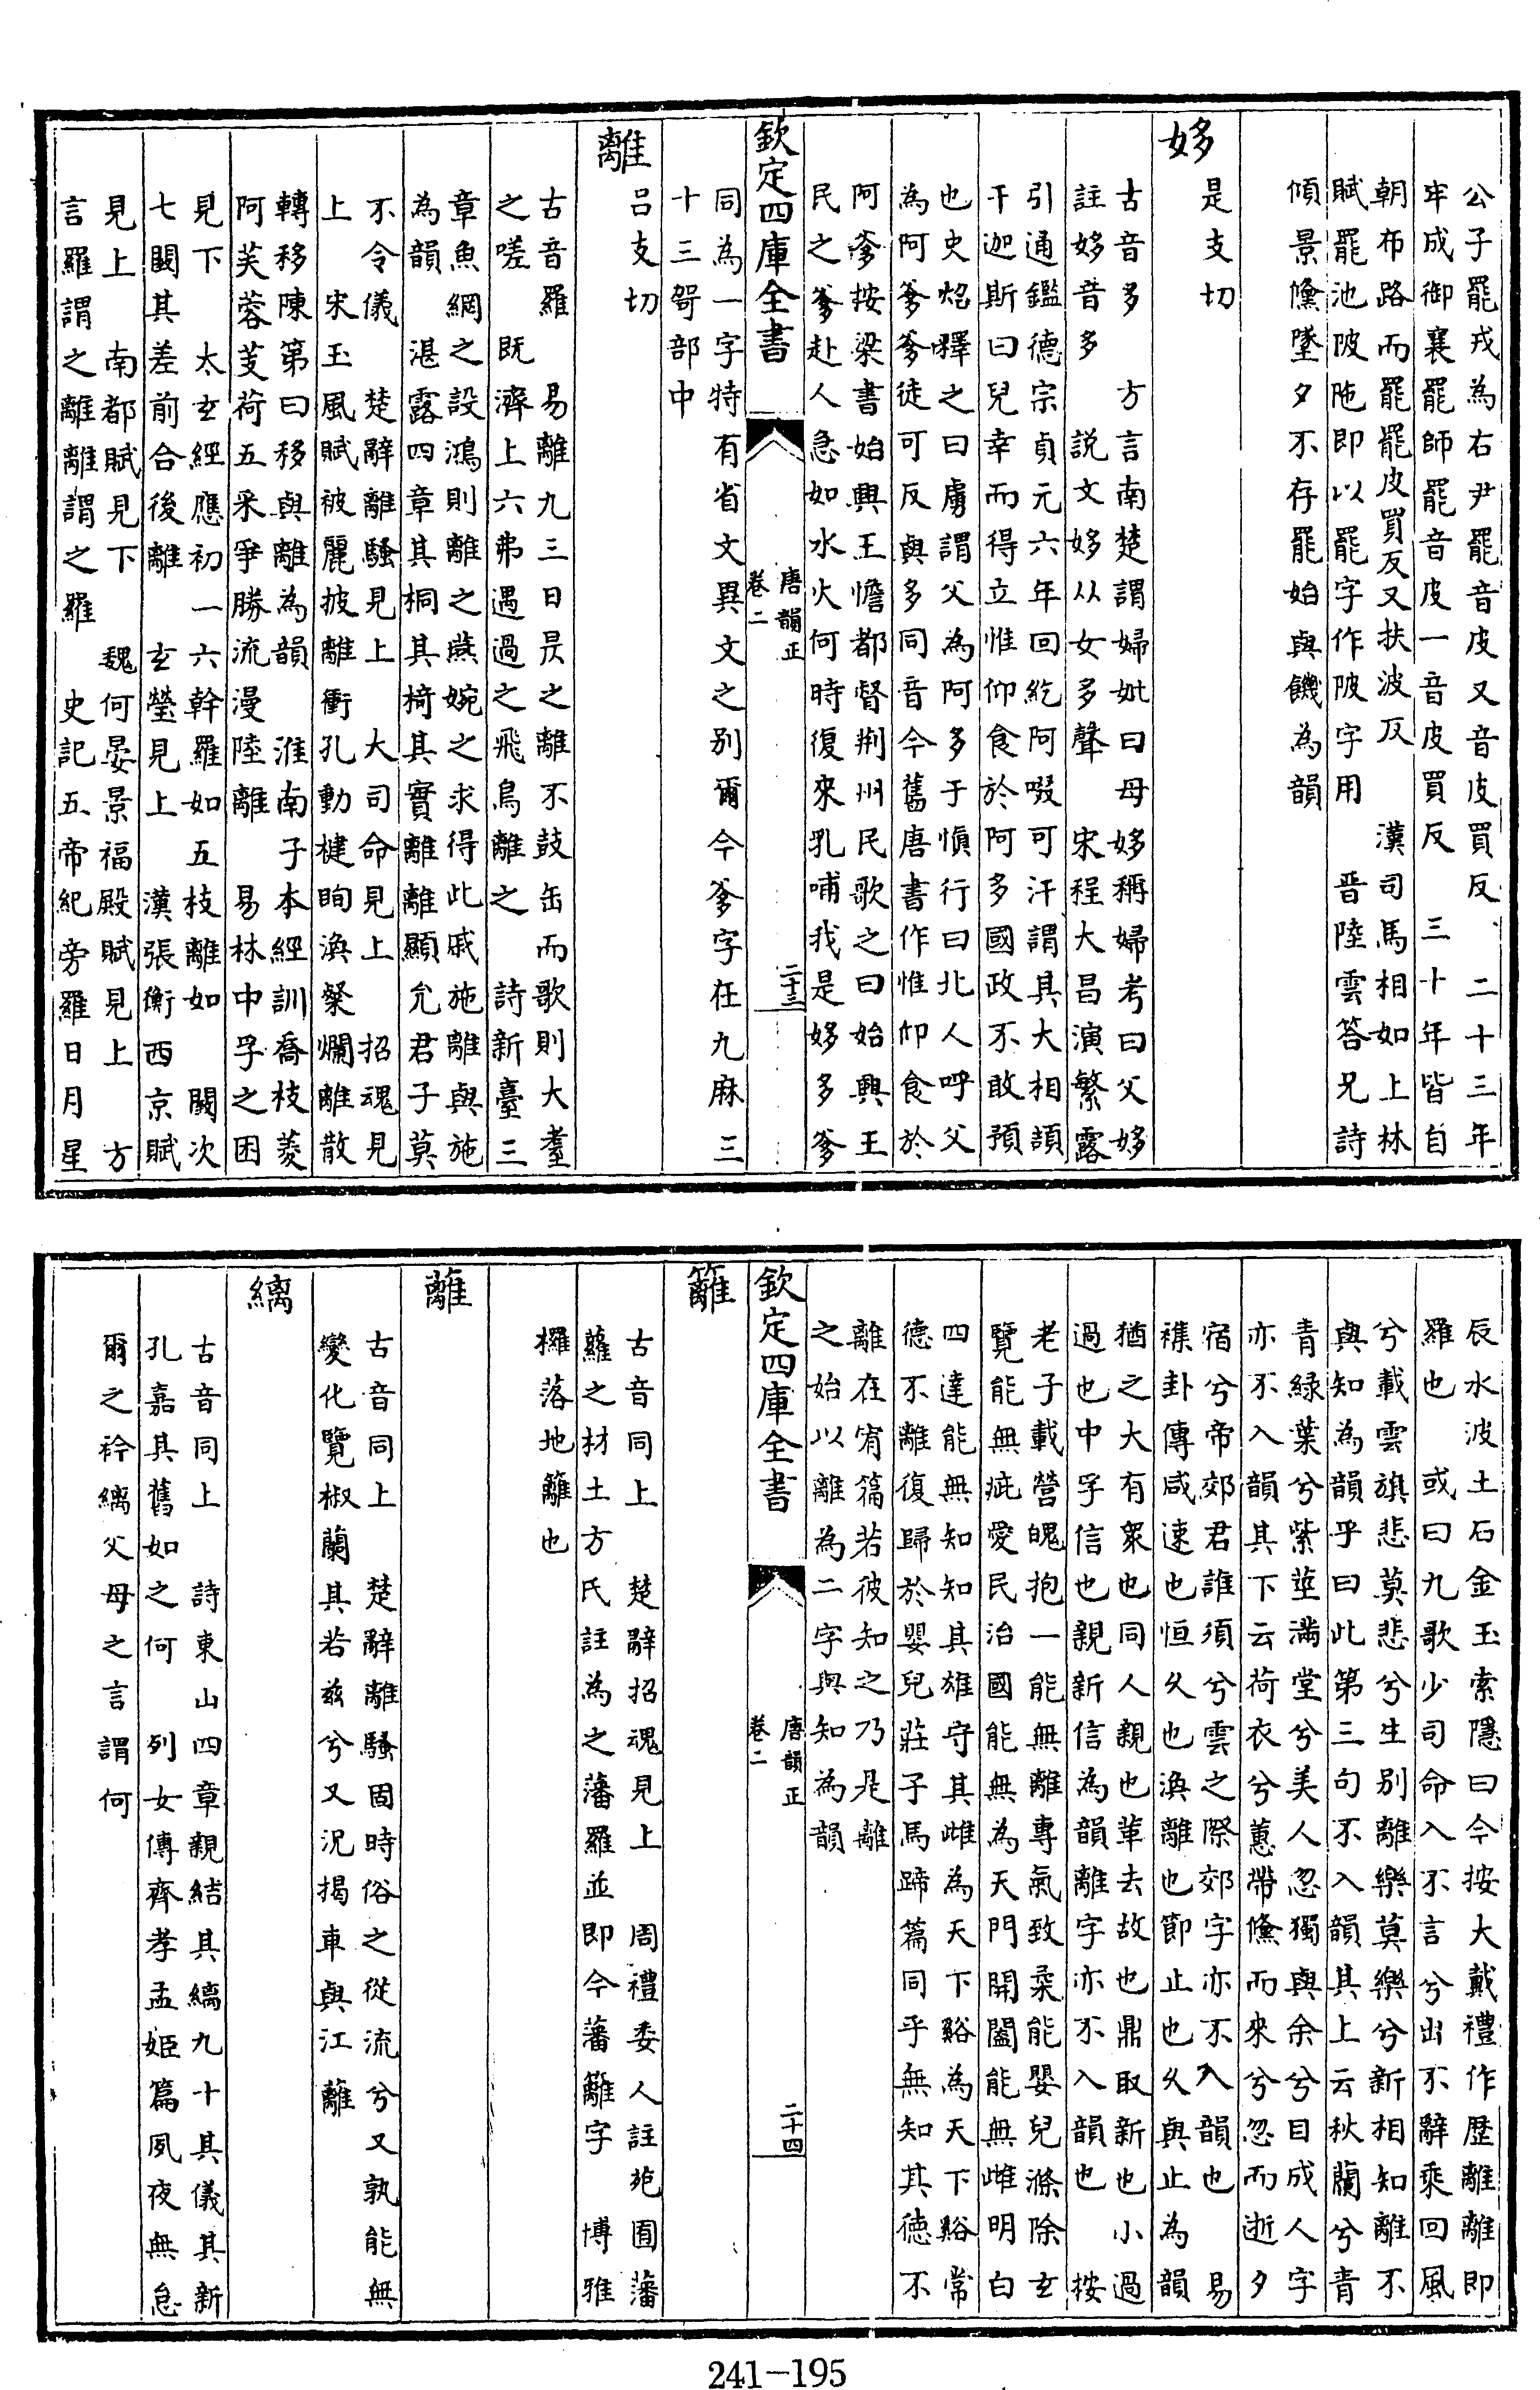 公子罷戎為右尹罷音皮又音皮買反 二十三年
牢成御襄罷師罷音皮一音皮買反 三十年皆自
朝布路而罷罷皮買反又扶波反 漢司馬相如上林
賦罷池陂陁即以罷字作陂字用 晉陸雲答兄詩
傾景儵墜夕不存罷始與饑為韻
姼
是支切
古音多 方言南楚謂婦妣曰母姼稱婦考曰父姼
註姼音多 說文姼从女多聲 宋程大昌演繁露
引通鑑德宗貞元六年回紇阿啜可汗謂其大相頡
干迦斯曰兒幸而得立惟仰食於阿多國政不敢預
也史炤釋之曰虜謂父為阿多于愼行曰北人呼父
為阿爹爹徒可反與多同音今舊唐書作惟仰食於
阿爹按梁書始興王憺都督荆州民歌之曰始興王
民之爹赴人急如水火何時復來乳哺我是姼多爹
欽定四庫全書
唐韻正
卷二
二十三
同為一字特有省文異文之别爾今爹字在九麻三
十三哿部中
離
呂支切
古音羅 易離九三日昃之離不鼓缶而歌則大耋
之嗟 既濟上六弗遇過之飛鳥離之 詩新臺三
章魚網之設鴻則離之燕婉之求得此戚施離與施
為韻 湛露四章其桐其椅其實離離顯允君子莫
不令儀 楚辭離騷見上 大司命見上 招魂見
上 宋玉風賦被麗披離衝孔動楗眴渙粲爛離散
轉移陳第曰移與離為韻 淮南子本經訓喬枝菱
阿芙蓉芰荷五采爭勝流漫陸離 易林中孚之困
見下 太𤣥經應初一六幹羅如五枝離如 闕次
七闕其差前合後離 𤣥瑩見上 漢張衡西京賦
見上 南都賦見下 魏何晏景福殿賦見上 方
言羅謂之離離謂之羅 史記五帝紀旁羅日月星
辰水波土石金玉索隱曰今按大戴禮作歷離離即
羅也 或曰九歌少司命入不言兮出不辭乘回風
兮載雲旗悲莫悲兮生别離樂莫樂兮新相知離不
與知為韻乎曰此第三句不入韻其上云秋蘭兮青
青緑葉兮紫莖滿堂兮美人忽獨與余兮目成人字
亦不入韻其下云荷衣兮蕙帶儵而來兮忽而逝夕
宿兮帝郊君誰須兮雲之際郊字亦不入韻也 易
襍卦傳咸速也恒久也渙離也節止也久與止為韻
猶之大有衆也同人親也革去故也鼎取新也小過
過也中孚信也親新信為韻離字亦不入韻也 按
老子載營魄抱一能無離專氣致柔能嬰兒滌除𤣥
覽能無疵愛民治國能無為天門開闔能無雌明白
四達能無知知其雄守其雌為天下谿為天下谿常
德不離復歸於嬰兒莊子馬蹄篇同乎無知其徳不
離在宥篇若彼知之乃是離
之始以離為二字與知為韻
欽定四庫全書
唐韻正
卷二
二十四
籬
古音同上 楚辭招魂見上 周禮委人註苑囿藩
蘿之材土方氏註為之藩羅並即今藩籬字 博雅
欏落地籬也
蘺
古音同上 楚辭離騷固時俗之從流兮又孰能無
變化覽椒蘭其若兹兮又況揭車與江蘺
縭
古音同上 詩東山四章親結其縭九十其儀其新
孔嘉其舊如之何 列女傳齊孝孟姬篇夙夜無怠
爾之衿縭父母之言謂何
241-195